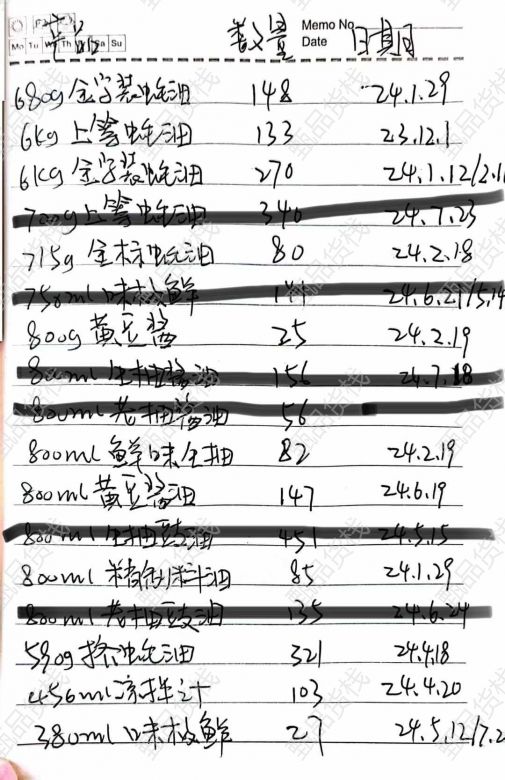 产品 数量 Memo No. Date 日期
Mo Tu We Th Fr Sa Su
680g 金字装蚝油 148 24.1.29
6kg 上等蚝油 133 23.12.1
6kg 金字装蚝油 270 24.1.12/2.1
700g 上等蚝油 340 24.7.23
715g 金标蚝油 80 24.2.18
750ml 味极鲜 24.6.21/5.14
800g 黄豆酱 25 24.2.19
800ml 生抽酱油 156 24.7.18
800ml 老抽酱油 56
800ml 鲜味生抽 82 24.2.19
800ml 黄豆酱油 147 24.6.19
800ml 生抽豉油 451 24.5.15
800ml 精制料油 85 24.1.29
800ml 老抽豉油 135 24.6.24
590g 挤蚝油 321 24.4.18
456ml 凉拌汁 103 24.4.20
380ml 味极鲜 27 24.5.12/7.2
臻品货栈